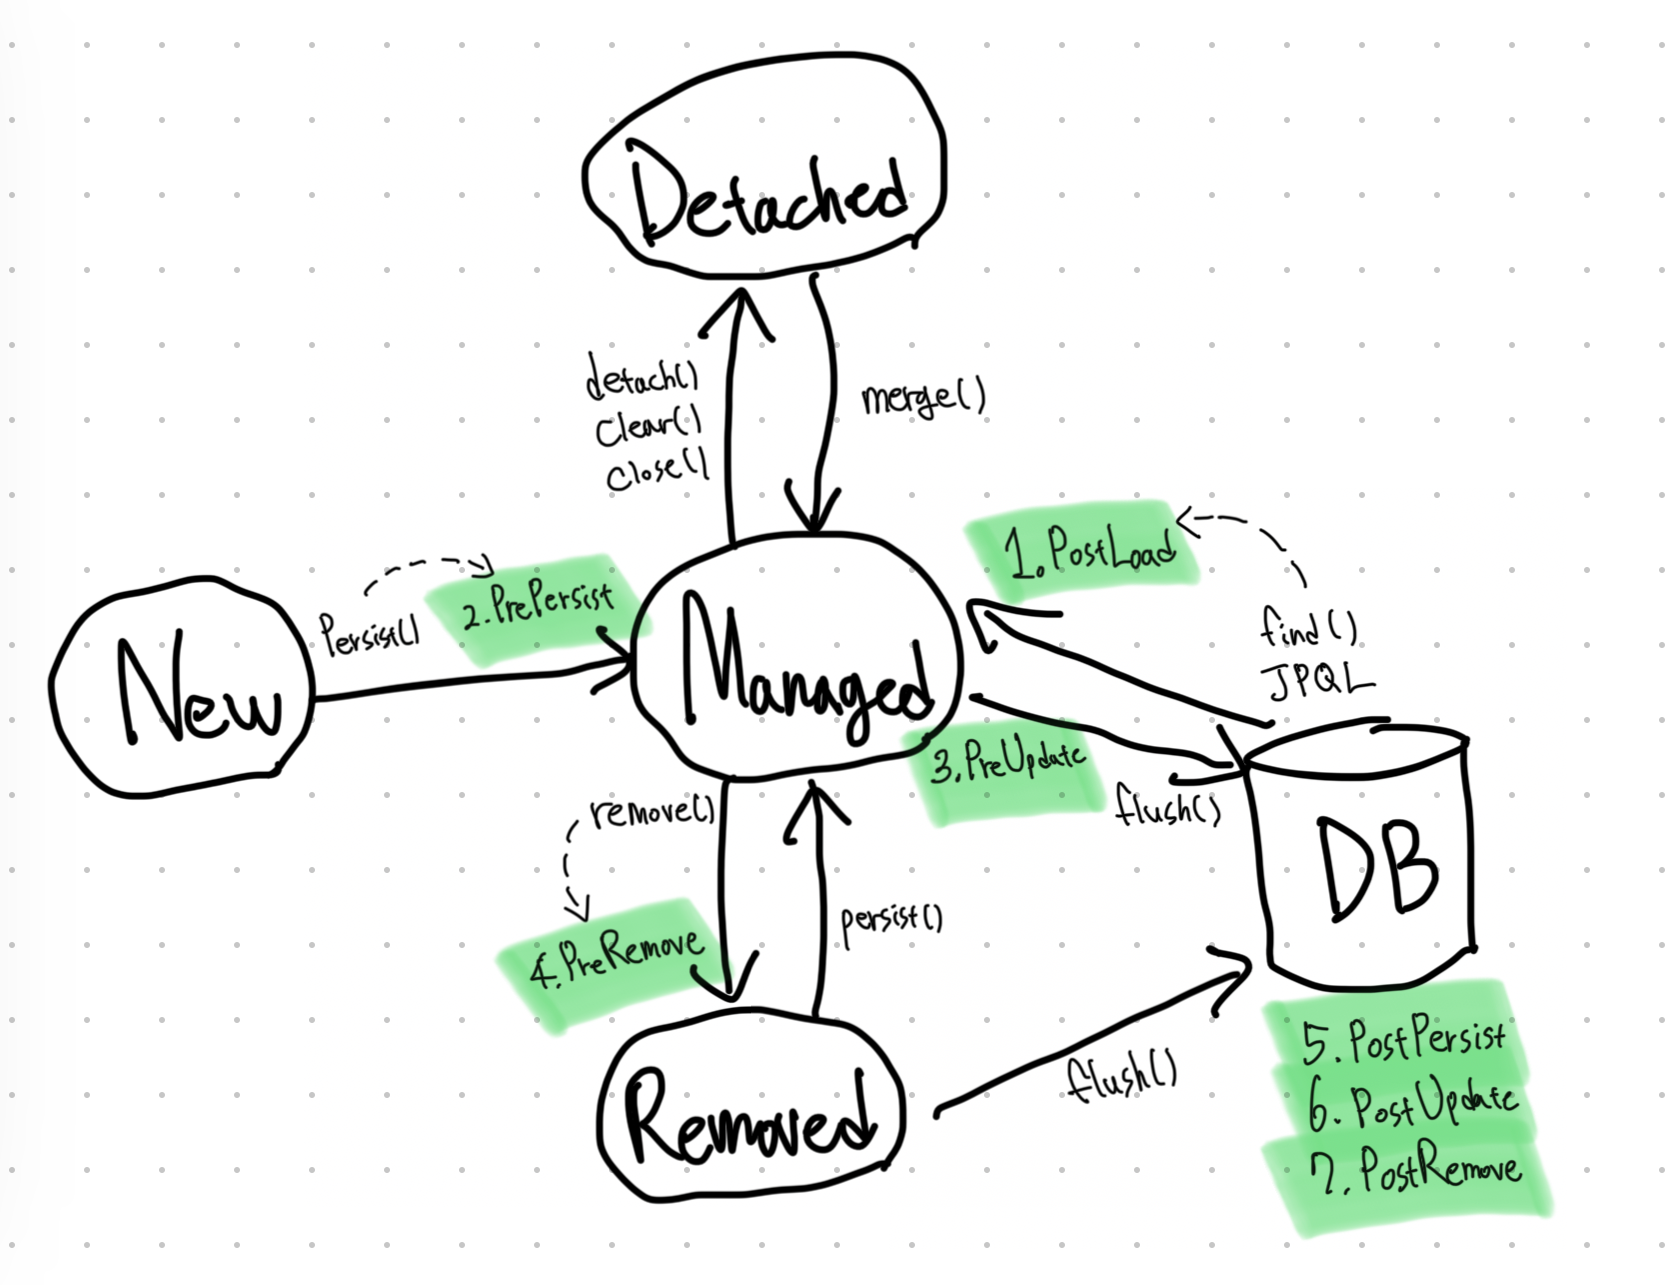 Detached
detach()
clear()
close()
merge()
1.PostLoad
find()
JPQL
Persist()
2.PrePersist
New
Managed
3.PreUpdate
flush()
DB
remove()
4.PreRemove
persist()
Removed
flush()
5.PostPersist
6.PostUpdate
7.PostRemove